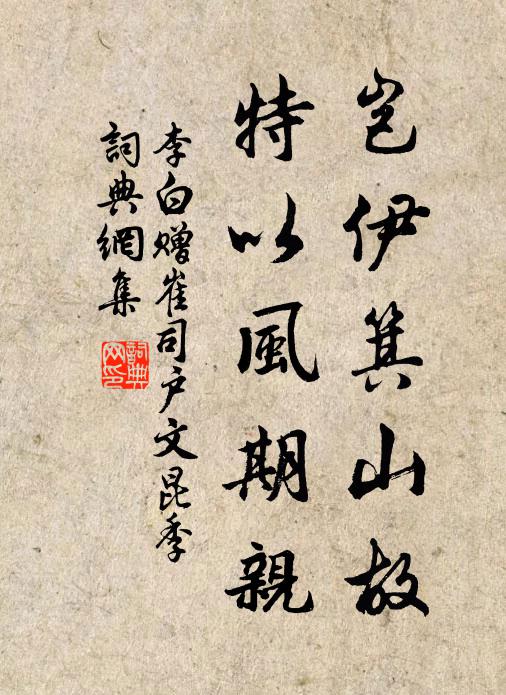 岂伊箕山故
特以風期親
李白赠崔司户文昆季
詞典網集
詞典
网印